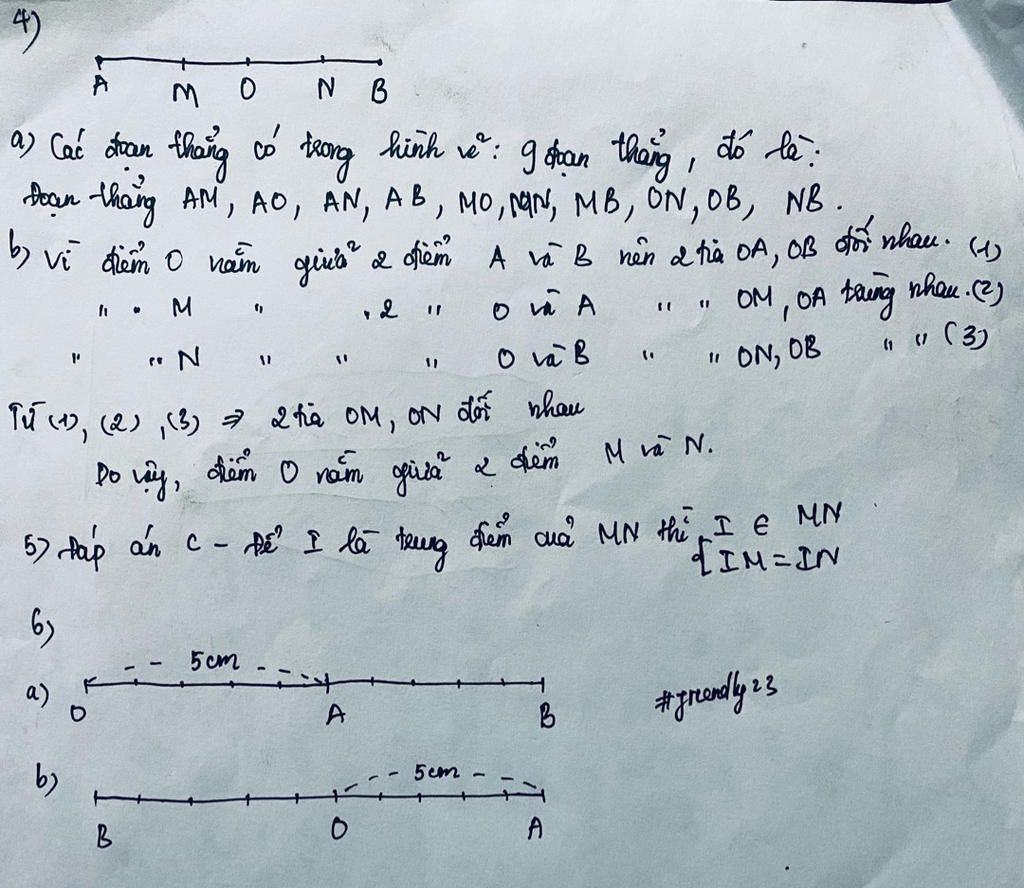 4)
A M O N B
a) Các đoạn thẳng có trong hình vẽ: 9 đoạn thẳng, đó là:
Đoạn thẳng AM, AO, AN, AB, MO, MN, MB, ON, OB, NB.
b) Vì điểm O nằm giữa 2 điểm A và B nên 2 tia OA, OB đối nhau. (1)
" " M " , 2 " O và A " " OM, OA trùng nhau. (2)
" " N " " " O và B " " ON, OB " " (3)
Từ (1), (2), (3) ⇒ 2 tia OM, ON đối nhau
Do vậy, điểm O nằm giữa 2 điểm M và N.
5) Đáp án C - Để I là trung điểm của MN thì { I ∈ MN
IM = IN
6)
5cm
a) O A B
#friendly23
b) 5cm
B O A